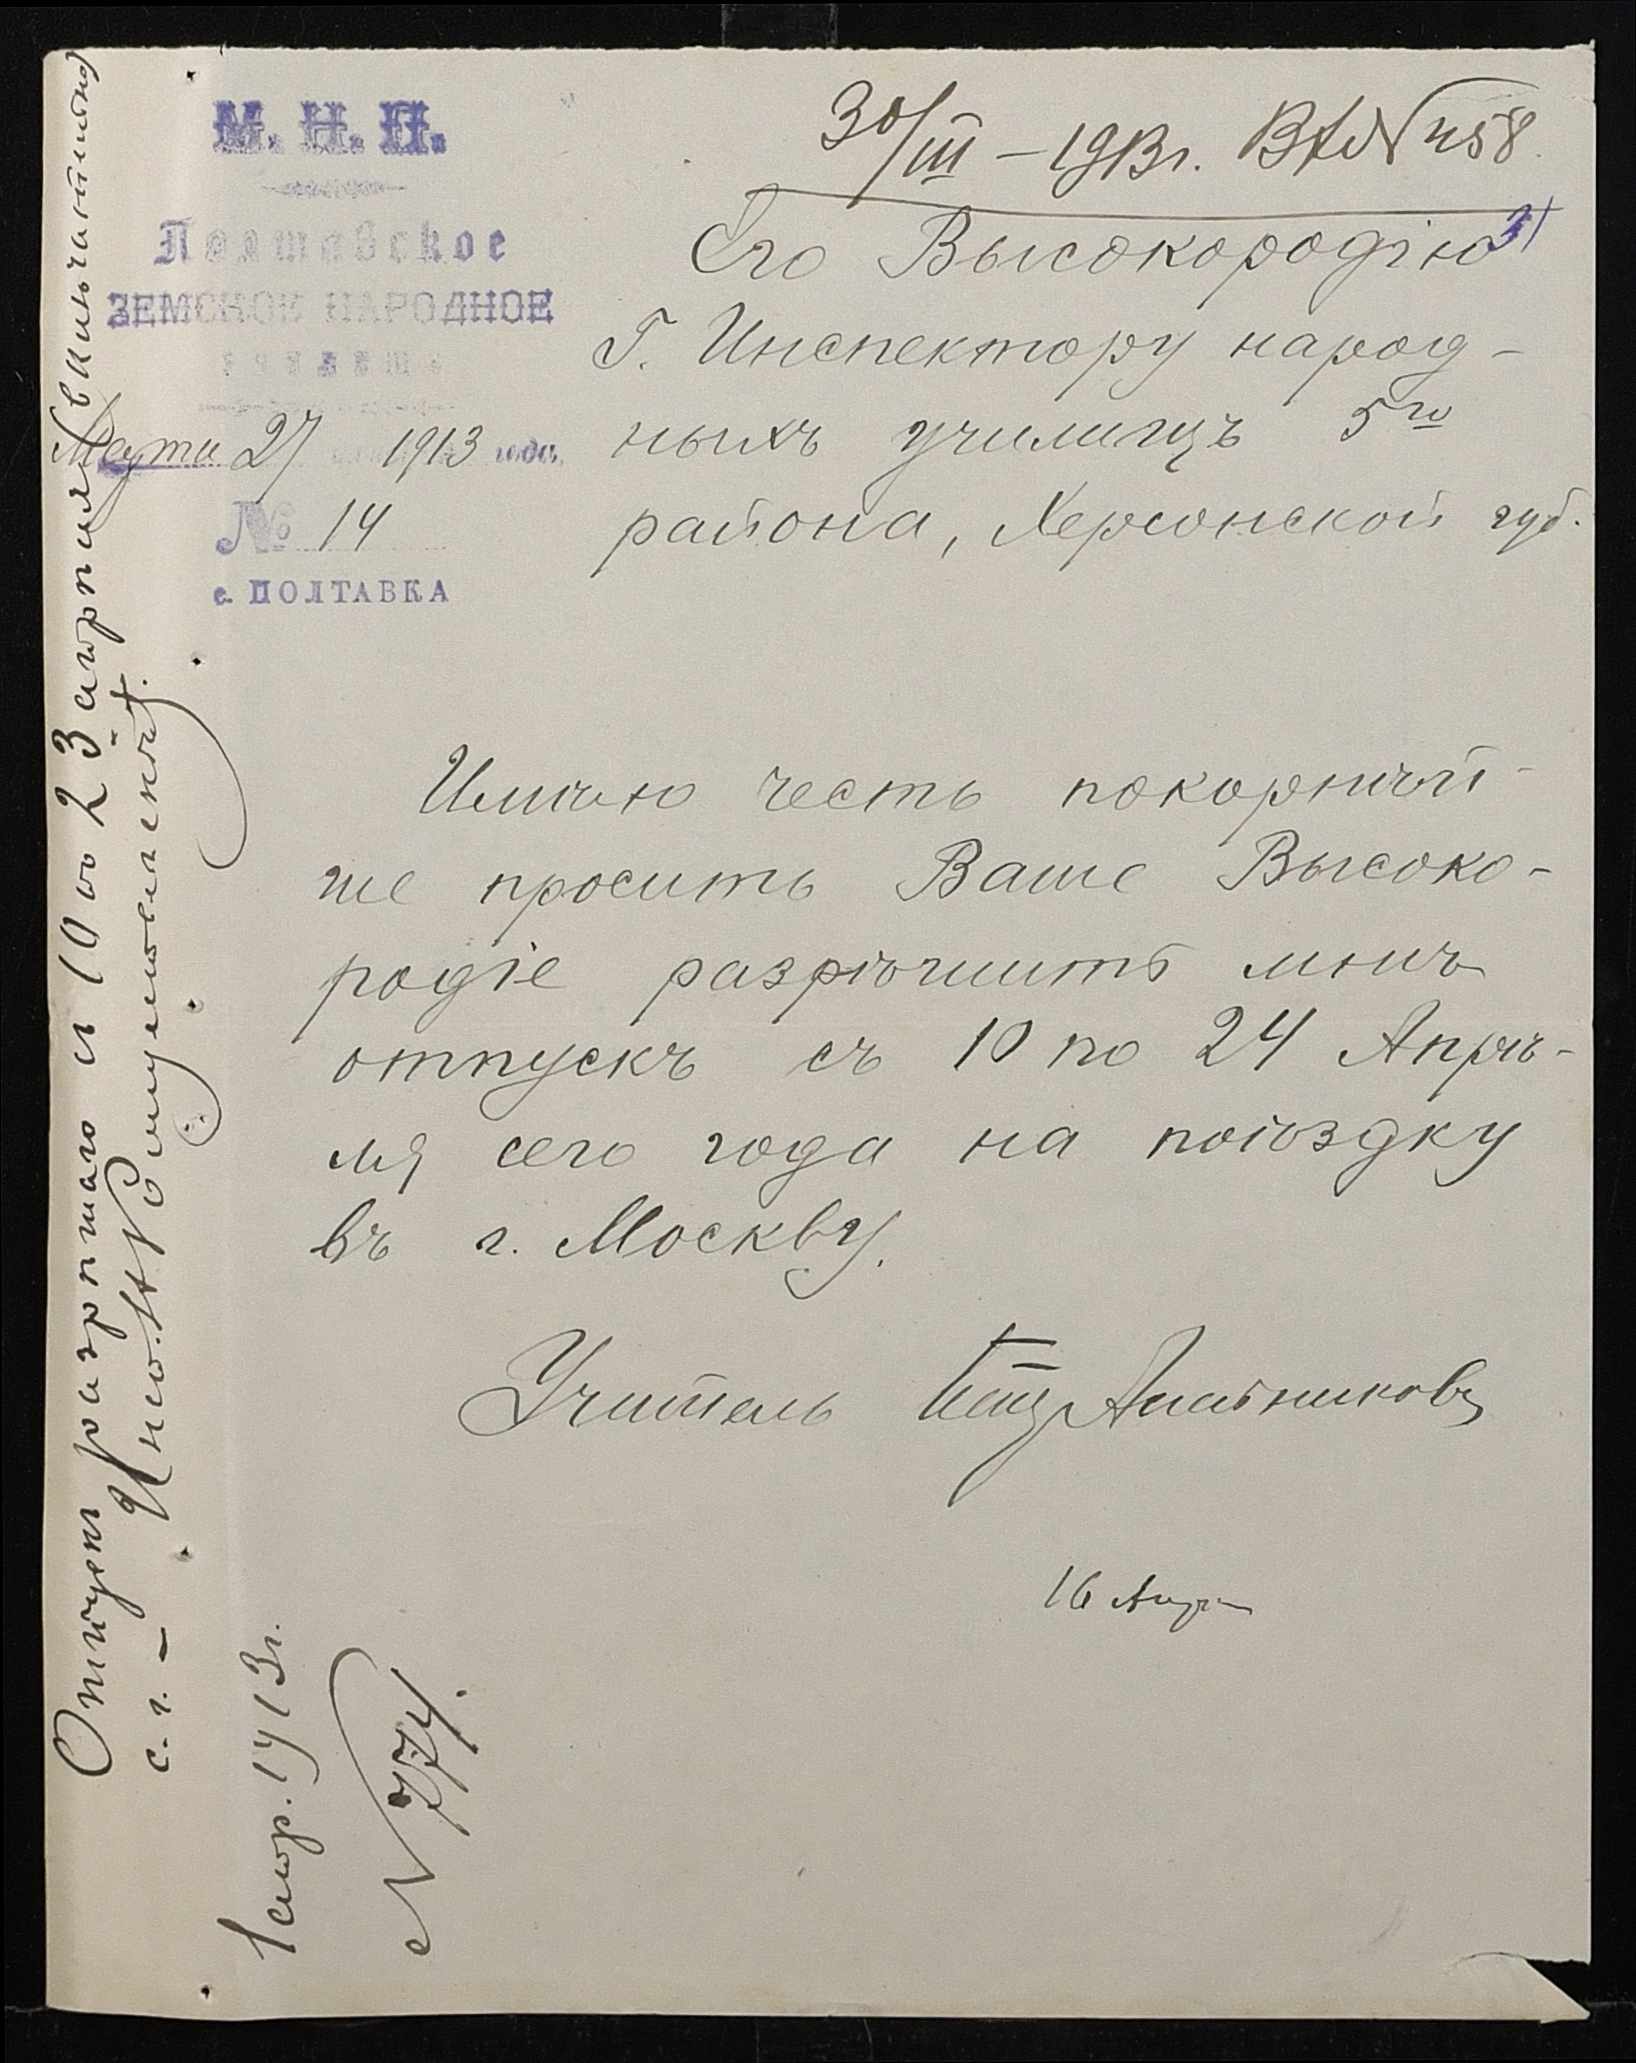 М. Н. П.
Полтавское
ЗЕМСКОЕ НАРОДНОЕ
училище
Марта 27 1913 года
№ 14
с. ПОЛТАВКА
30/III – 1913 г. Вх № 458
31
Его Высокородію
Г. Инспектору народ-
ныхъ училищъ 5го
района, Херсонской губ.
Имѣю честь покорнѣй-
ше просить Ваше Высоко-
родіе разрѣшить мнѣ
отпускъ съ 10 по 24 Апрѣ-
ля сего года на поѣздку
въ г. Москву.
Учитель
16 Апр
Отпускъ разрѣшаю съ 10 по 23 апрѣля (включительно)
с. г. – Инсп. Н.
1 апр. 1913 г.
N 774.